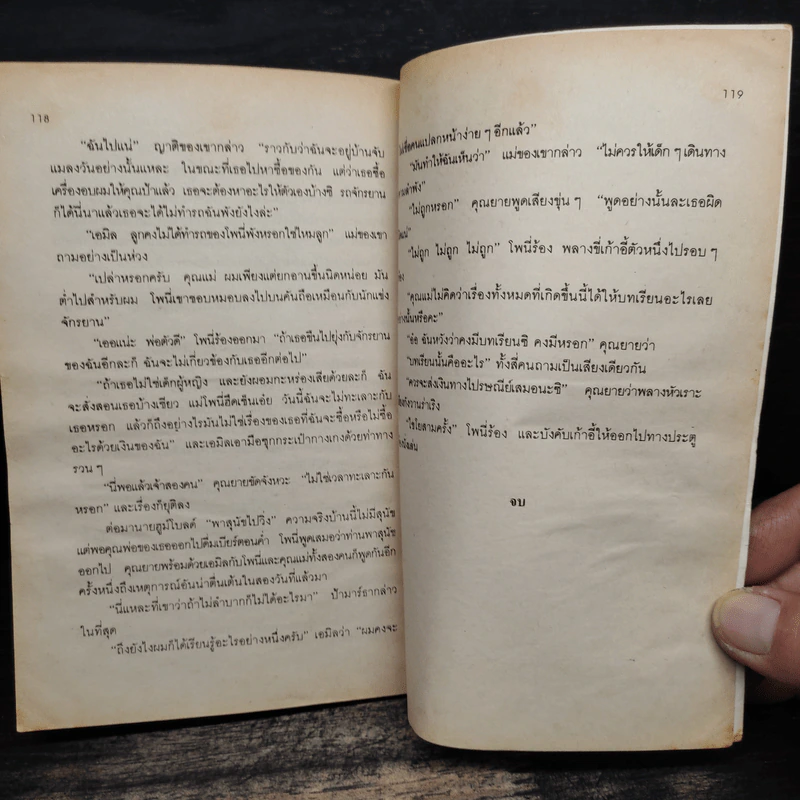 118
“ฉันไปแน่” ญาติของเขากล่าว “ราวกับว่าฉันจะอยู่บ้านจับ
แมลงวันอย่างนั้นแหละ ในขณะที่เธอไปหาซื้อของกัน แต่ว่าเธอซื้อ
เครื่องอบผมให้คุณป้าแล้ว เธอจะต้องหาอะไรให้ตัวเองบ้างซิ รถจักรยาน
ก็ได้นี่นาแล้วเธอจะได้ไม่ทำรถฉันพังยังไงล่ะ”
“เอมิล ลูกคงไม่ได้ทำรถของโพนี่พังหรอกใช่ไหมลูก” แม่ของเขา
ถามอย่างเป็นห่วง
“เปล่าหรอกครับ คุณแม่ ผมเพียงแต่ยกอานขึ้นนิดหน่อย มัน
ต่ำไปสำหรับผม โพนี่เขาชอบหมอบลงไปบนคันถือเหมือนกับนักแข่ง
จักรยาน”
“เออแน่ะ พ่อตัวดี” โพนี่ร้องออกมา “ถ้าเธอขืนไปยุ่งกับจักรยาน
ของฉันอีกละก็ ฉันจะไม่เกี่ยวข้องกับเธออีกต่อไป”
“ถ้าเธอไม่ใช่เด็กผู้หญิง และยังผอมกะหร่องเสียด้วยละก็ ฉัน
จะสั่งสอนเธอบ้างเชียว แม่โพนี่ฮึดเซ็นเอ๋ย วันนี้ฉันจะไม่ทะเลาะกับ
เธอหรอก แล้วก็ถึงอย่างไรมันไม่ใช่เรื่องของเธอที่ฉันจะซื้อหรือไม่ซื้อ
อะไรด้วยเงินของฉัน” และเอมิลเอามือซุกกระเป๋ากางเกงด้วยท่าทาง
รวน ๆ
“นี่พอแล้วเจ้าสองคน” คุณยายขัดจังหวะ “ไม่ใช่เวลาทะเลาะกัน
หรอก” และเรื่องก็ยุติลง
ต่อมานายฮูมโบลด์ “พาสุนัขไปวิ่ง” ความจริงบ้านนี้ไม่มีสุนัข
แต่พอคุณพ่อของเธอออกไปดื่มเบียร์ตอนค่ำ โพนี่พูดเสมอว่าท่านพาสุนัข
ออกไป คุณยายพร้อมด้วยเอมิลกับโพนี่และคุณแม่ทั้งสองคนก็พูดกันอีก
ครั้งหนึ่งถึงเหตุการณ์อันน่าตื่นเต้นในสองวันที่แล้วมา
“นี่แหละที่เขาว่าถ้าไม่ลำบากก็ไม่ได้อะไรมา” ป้ามาร์ธากล่าว
ในที่สุด
“ถึงยังไงผมก็ได้เรียนรู้อะไรอย่างหนึ่งครับ” เอมิลว่า “ผมคงจะ
119
คนแปลกหน้าง่าย ๆ อีกแล้ว”
“มันทำให้ฉันเห็นว่า” แม่ของเขากล่าว “ไม่ควรให้เด็ก ๆ เดินทาง
ลำพัง”
“ไม่ถูกหรอก” คุณยายพูดเสียงขุ่น ๆ “พูดอย่างนั้นละเธอผิด
“ไม่ถูก ไม่ถูก ไม่ถูก” โพนี่ร้อง พลางขี่เก้าอี้ตัวหนึ่งไปรอบ ๆ
“คุณแม่ไม่คิดว่าเรื่องทั้งหมดที่เกิดขึ้นนี้ได้ให้บทเรียนอะไรเลย
นั้นหรือคะ”
“อ๋อ ฉันหวังว่าคงมีบทเรียนซิ คงมีหรอก” คุณยายว่า
“บทเรียนนั้นคืออะไร” ทั้งสี่คนถามเป็นเสียงเดียวกัน
“ควรจะส่งเงินทางไปรษณีย์เสมอนะซิ” คุณยายว่าพลางหัวเราะ
กังวานร่าเริง
“ไชโยสามครั้ง” โพนี่ร้อง และบังคับเก้าอี้ให้ออกไปทางประตู
จบ